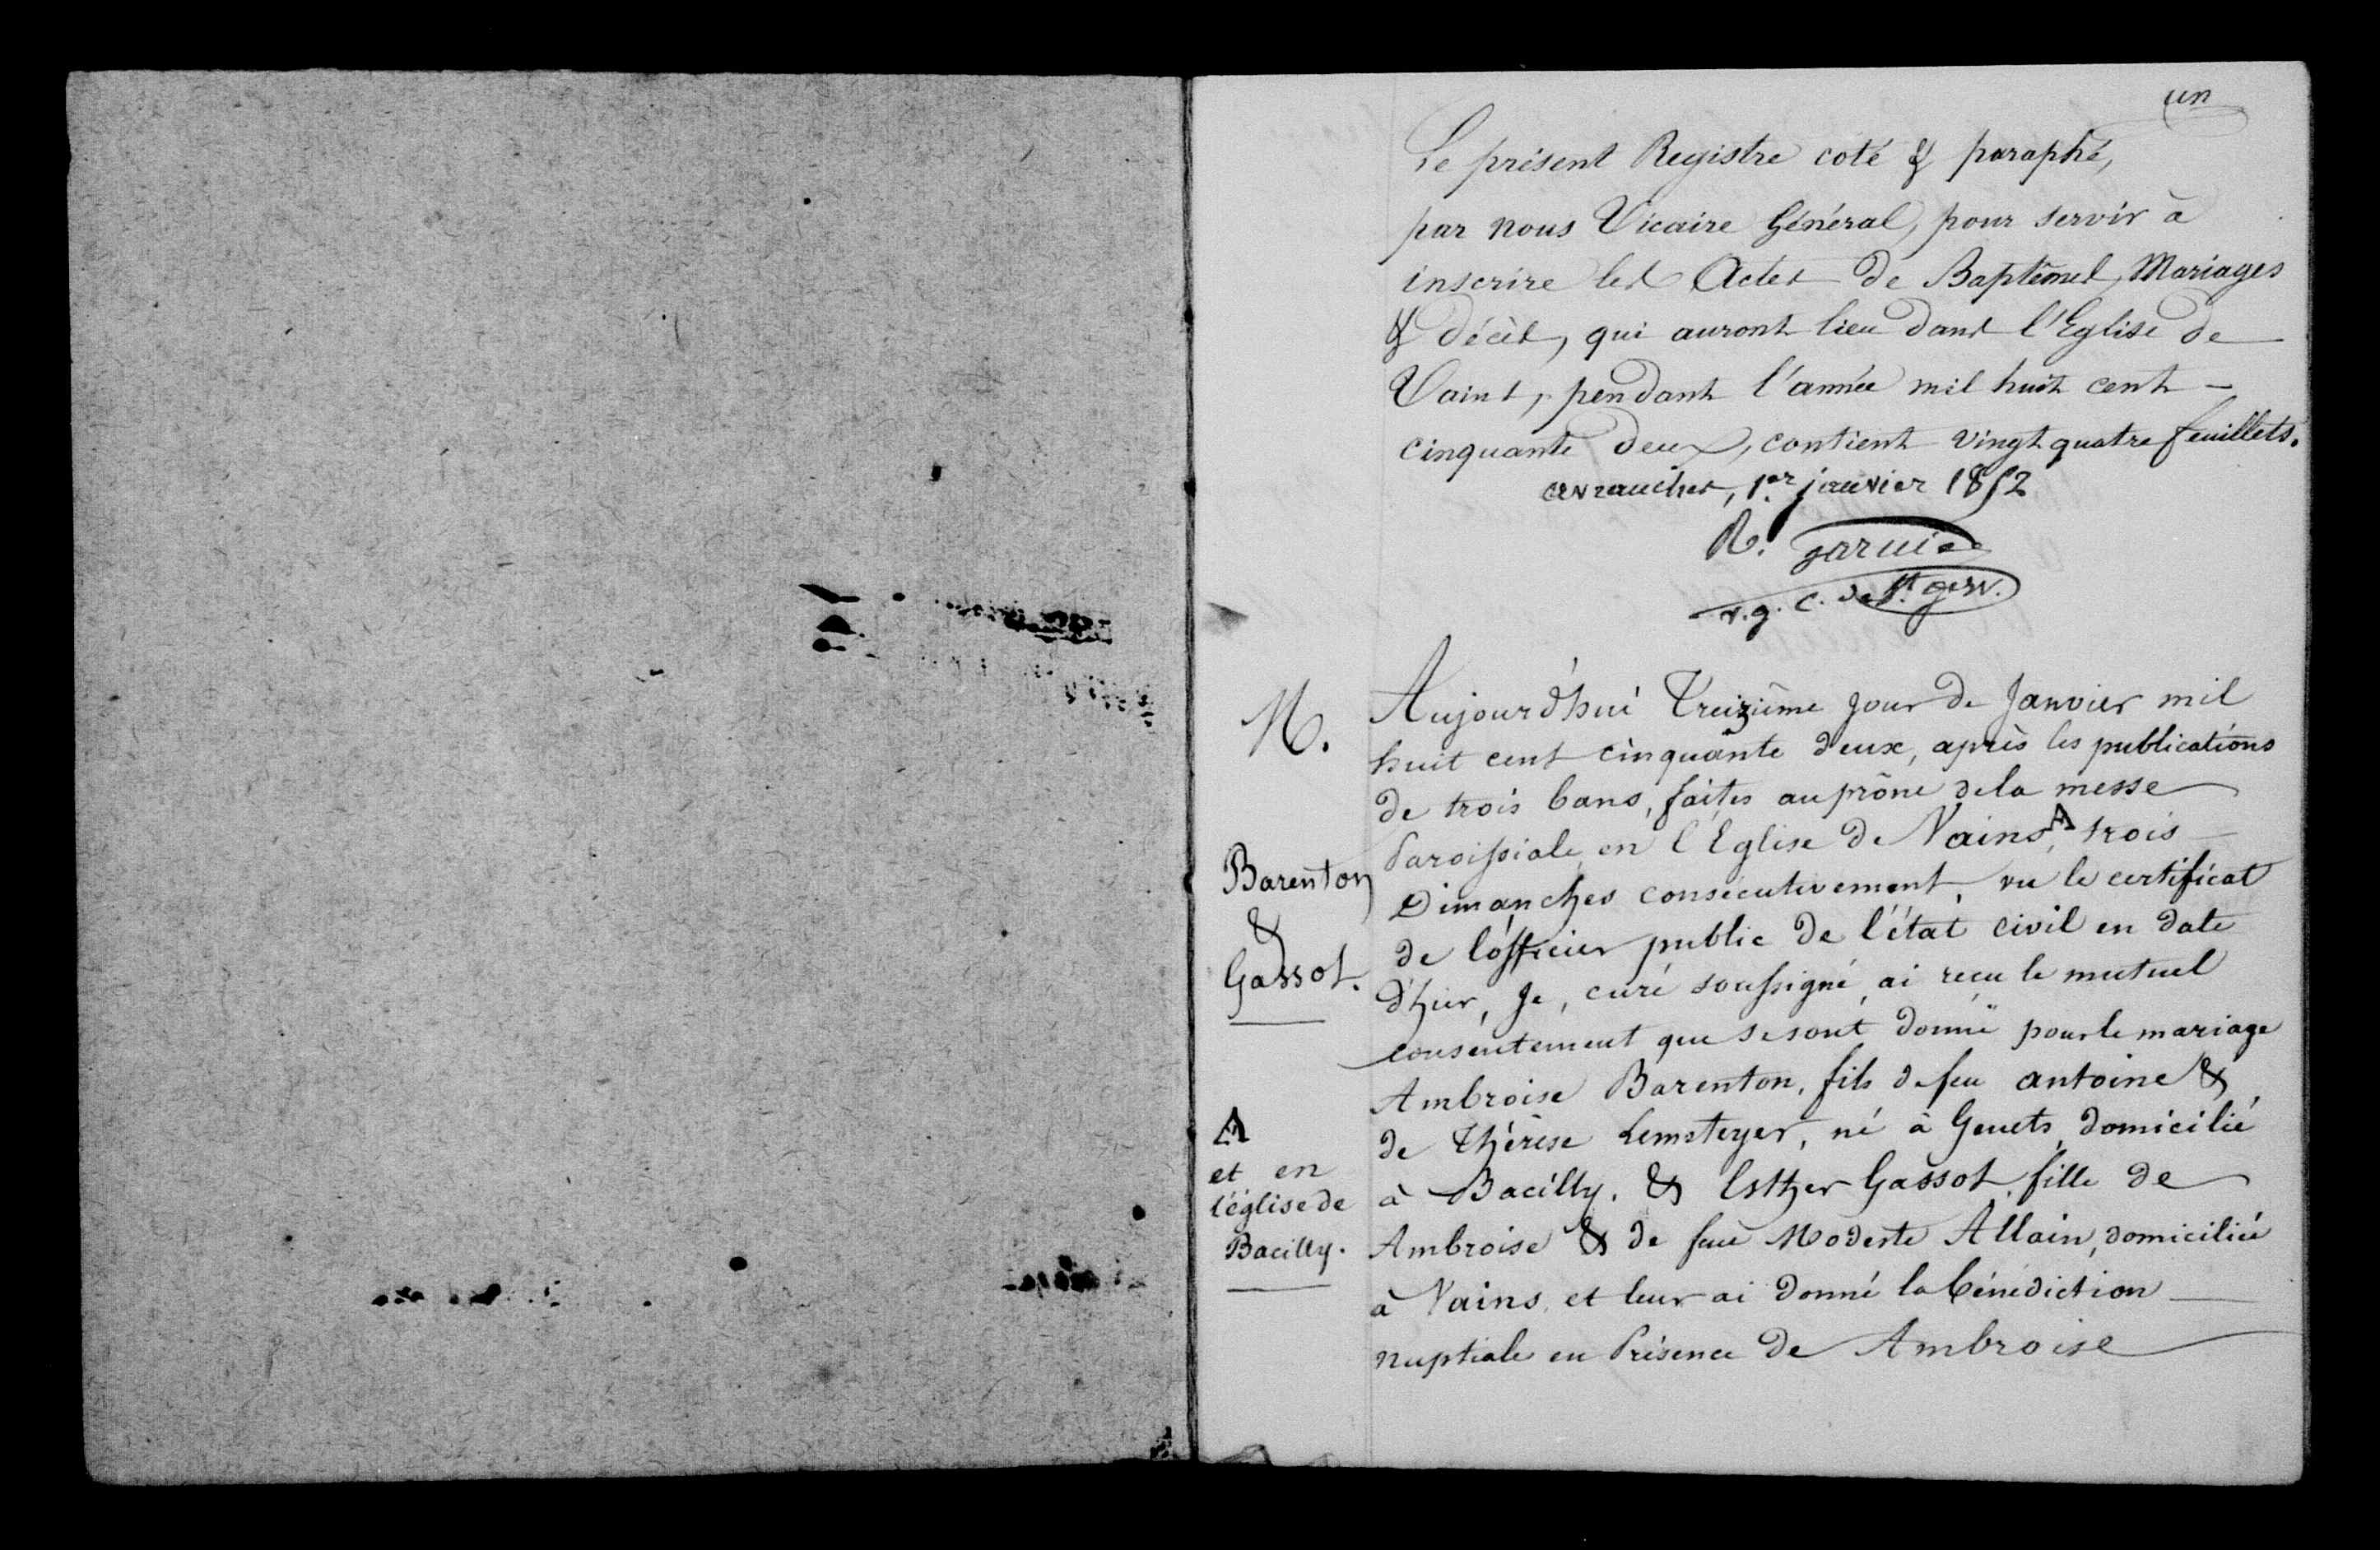 un
Le présent Registre coté & paraphé,
par nous Vicaire Général, pour servir à
inscrire les Actes de Baptêmes, Mariages
& décès, qui auront lieu dans l'Eglise de
Vains, pendant l'année mil huit cent –
cinquante deux, contient vingt quatre feuillets.
avranches, 1er janvier 1852
R. garnier
v. g. C. de St. gerv.
M.
Aujourd'hui Treizième jour de Janvier mil
huit cent cinquante deux, après les publications
de trois bans, faites au prône de la messe
Paroissiale en l'Eglise de Vains, A trois
Dimanches consécutivement, vu le certificat
de l'officier public de l'état civil en date
d'hier, Je, curé soussigné, ai reçu le mutuel
consentement que se sont donné pour le mariage
Ambroise Barenton, fils de feu antoine &
de Thérèse Lemsteyer, né à Genets, domicilié
à Bacilly. & Esther Gassot, fille de
Ambroise & de feue Modeste Allain, domiciliée
à Vains, et leur ai donné la bénédiction
nuptiale en Présence de Ambroise
Barenton
&
Gassot.
A
et en
l'église de
Bacilly.